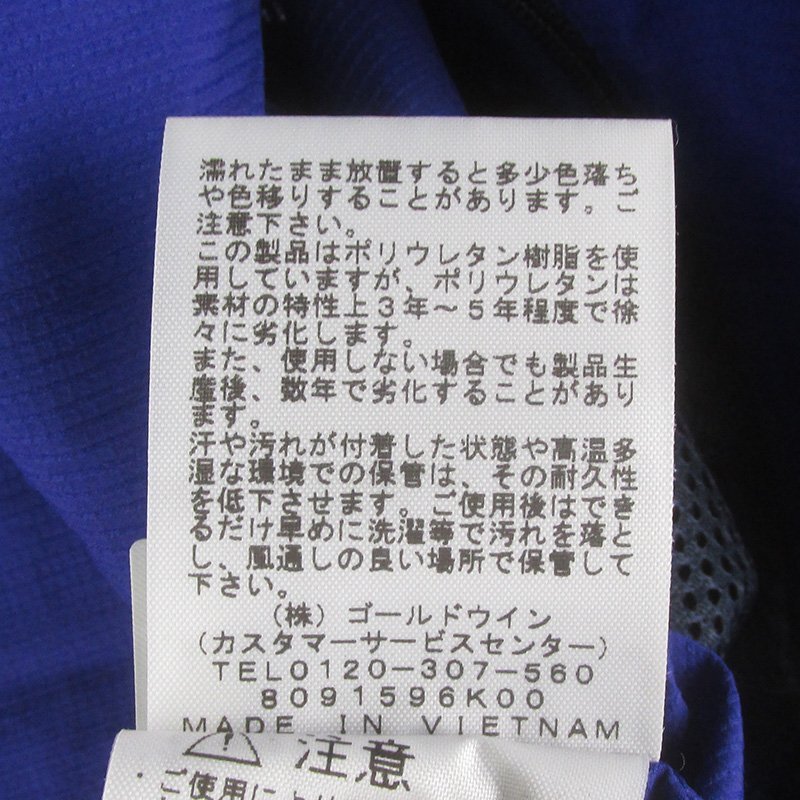 濡れたまま放置すると多少色落ち
や色移りすることがあります。ご
注意下さい。
この製品はポリウレタン樹脂を使
用していますが、ポリウレタンは
素材の特性上3年～5年程度で徐
々に劣化します。
また、使用しない場合でも製品生
産後、数年で劣化することがあり
ます。
汗や汚れが付着した状態や高温多
湿な環境での保管は、その耐久性
を低下させます。ご使用後はでき
るだけ早めに洗濯等で汚れを落と
し、風通しの良い場所で保管して
下さい。
(株)ゴールドウイン
(カスタマーサービスセンター)
TEL0120-307-560
8091596K00
MADE IN VIETNAM
注意
・ご使用により